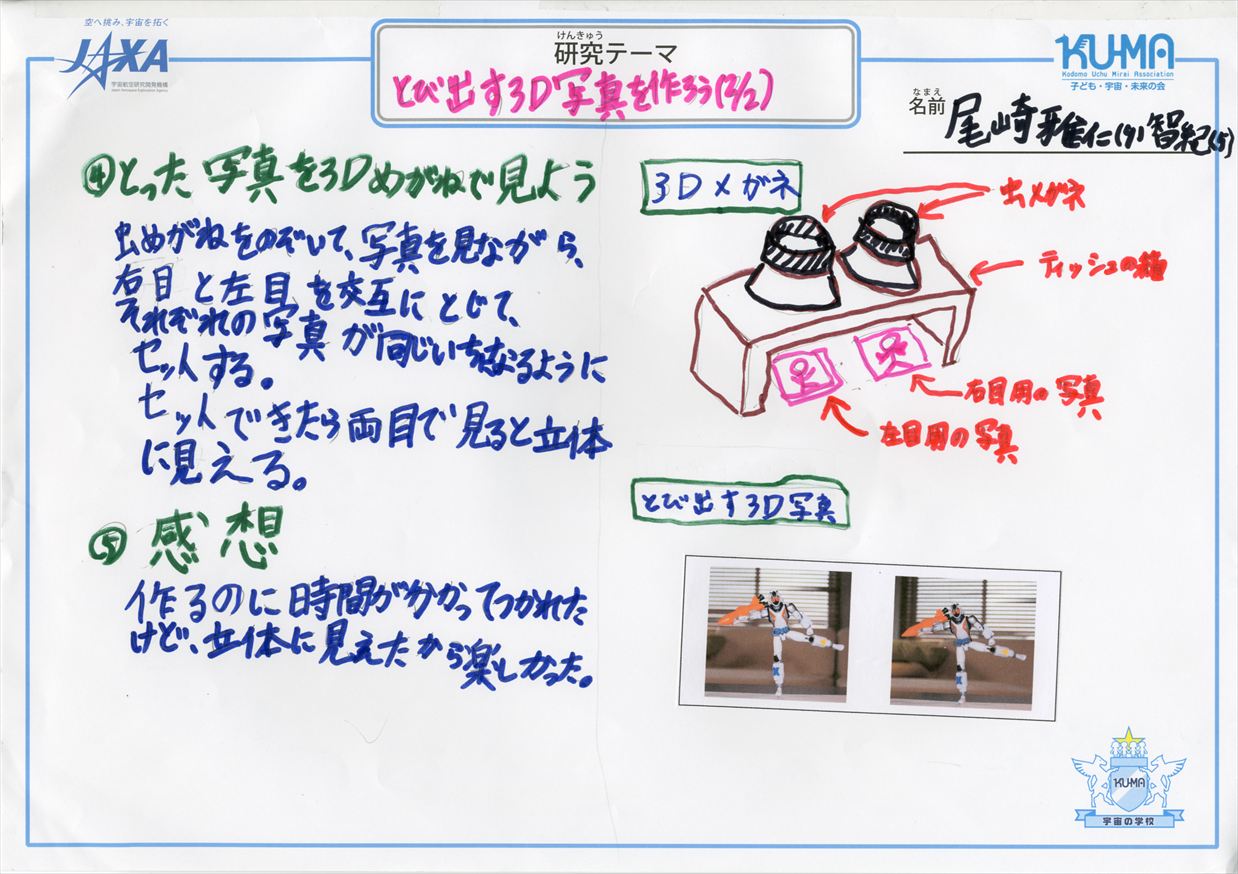 空へ挑み、宇宙を拓く
JAXA
宇宙航空研究開発機構
Japan Aerospace Exploration Agency
けんきゅう
研究テーマ
とび出す3D写真を作ろう(2/2)
KU-MA
Kodomo Uchu Mirai Association
子ども・宇宙・未来の会
なまえ
名前
尾崎雅仁(9)智紀(5)
④とった写真を3Dめがねで見よう
虫めがねをのぞいて、写真を見ながら、
右目と左目を交互にとじて、
それぞれの写真が同じいちになるように
セットする。
セットできたら両目で見ると立体
に見える。
⑤感想
作るのに時間が分かってつかれた
けど、立体に見えたから楽しかった。
3Dメガネ
虫メガネ
ティッシュの箱
右目用の写真
左目用の写真
とび出す3D写真
KU-MA
宇宙の学校